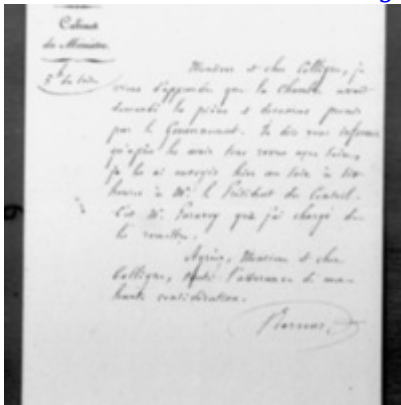 Cabinet
du Ministre
Monsieur et cher Collègue, je
viens d'apprendre que la Chambre avait
demandé les pièces et
par le Gouvernement. Je dois vous informer
qu'après les avoir tous revus avec soin,
je les ai envoyés hier au soir à dix
heures à Mr. le Président du Conseil.
C'est Mr. que j'ai chargé de
les remettre.
Agréez, Monsieur et cher
Collègue, l'assurance de ma
haute considération.